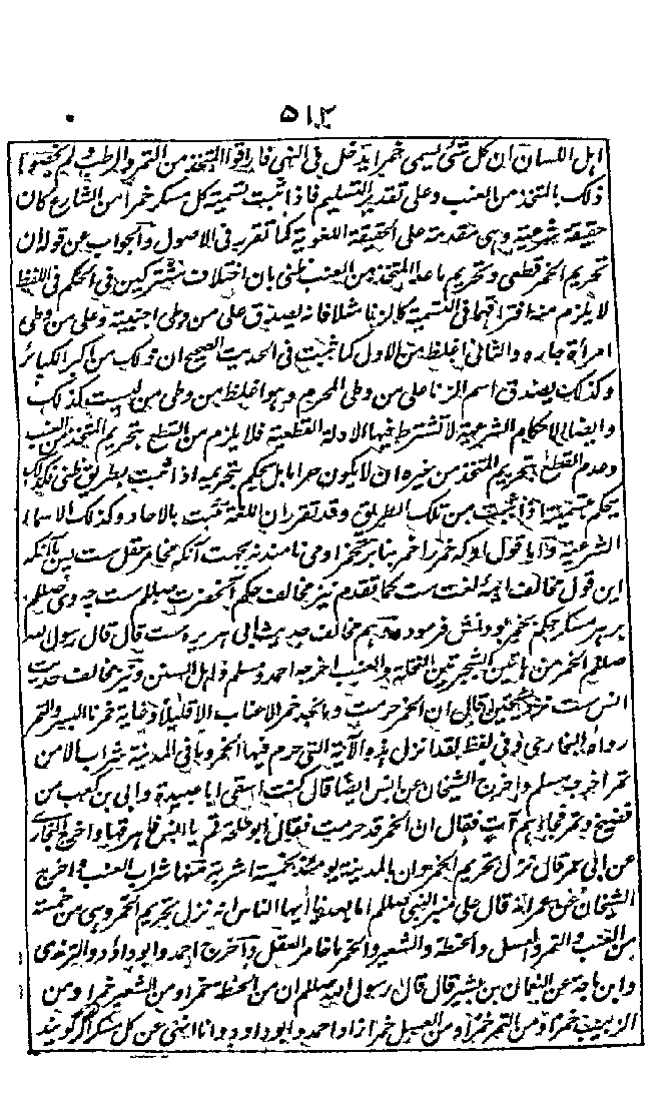 ۵۱۲
اہل اللسان ان کل شئ یسمی خمرا یدخل فی النہی فاراقوا المتخذ من التمر والرطب ولم یخصوا
ذلک بالمتخذ من العنب وعلی تقدیر التسلیم فاذا ثبت تسمیۃ کل مسکر خمرا من الشارع کان
حقیقۃ شرعیۃ وہی مقدمۃ علی الحقیقۃ اللغویۃ کما تقرر فی الاصول والجواب عن قولہ ان
تحریم الخمر قطعی وتحریم ما عدا المتخذ من العنب ظنی بان اختلاف مشترکین فی الحکم فی اللفظ
لا یلزم منہ افتراقہما فی التسمیۃ کالزنا مثلا فانہ یصدق علی من وطی اجنبیۃ وعلی من وطی
امرأۃ جارہ والثانی اغلظ من الاول کما ثبت فی الحدیث الصحیح ان ذلک من اکبر الکبائر
وکذلک یصدق اسم الزنا علی من وطی المحرم وہو اغلظ من وطی من لیست کذلک
وایضا الاحکام الشرعیۃ لا تشترط فیہا الادلہ القطعیۃ فلا یلزم من القطع بتحریم المتخذ من العنب
وعدم القطع بتحریم المتخذ من غیرہ ان لا یکون حراما بل یحکم بتحریمہ اذا ثبت بطریق ظنی فکذلک
یحکم بتسمیتہ اذا ثبت من تلک الطریق وقد تقرر ان اللغۃ تثبت بالاحاد وکذلک الاسماء
الشرعیۃ واما قول او کہ خمر را خمر بنابر تخمر او می نامند نہ بجہت آنکہ مخامر عقل ست پس با آنکہ
این قول مخالف ایمۂ لغت ست کما تقدم نیز مخالف حکم آنحضرت صلعم ست چہ وی صلعم
بر ہر مسکر حکم بخمر بودنش فرمودہ وہم مخالف حدیث ابی ہریرہ ست قال قال رسول اللہ
صلعم الخمر من ہاتین الشجرتین النخلۃ والعنب اخرجہ احمد ومسلم واہل السنن ونیز مخالف حدیث
انس ست نزد شیخین قال ان الخمر حرمت وما نجد خمر الاعناب الا قلیلا وغایۃ خمرنا البسر والتمر
رواہ البخاری وفی لفظ لقد انزل ہذہ الآیۃ التی حرم فیہا الخمر وما فی المدینۃ شراب الا من
تمر اخرجہ مسلم واخرج الشیخان عن انس ایضا قال کنت اسقی ابا عبیدۃ وابی بن کعب من
فضیخ وتمر فجاءہم آت فقال ان الخمر قد حرمت فقال ابو طلحۃ قم یا انس فاہرقہا واخرج البخاری
عن ابی عمر قال نزل تحریم الخمر وان بالمدینۃ یومئذ لخمسۃ اشربۃ منہا شراب العنب واخرج
الشیخان عن عمر انہ قال علی منبر النبی صلعم اما بعد فیا ایہا الناس انہ نزل تحریم الخمر وہی من خمسۃ
من العنب والتمر والعسل والحنطۃ والشعیر والخمر ما خامر العقل وآخرج احمد وابو داؤد والترمذی
وابن ماجۃ عن النعمان بن بشیر قال قال رسول اللہ صلعم ان من الحنطۃ خمرا ومن الشعیر خمرا ومن
الزبیب خمرا ومن التمر خمرا ومن العسل خمرا زاد احمد وابو داود وانا انہی عن کل مسکر اگر گویند